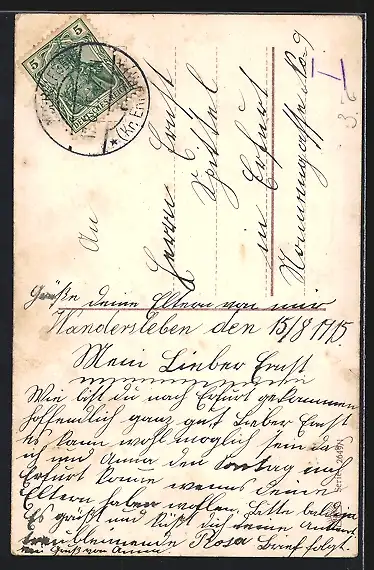 5
5
DEUTSCHES REICH
(Kr. Erf
An
Herrn Ernst
Spittel
in Erfurt
Nonnengasse No 9
I
3. 6
Grüße deine Eltern von mir
Wandersleben den 15/8 1915.
Mein Lieber Ernst
Wie bist du nach Erfurt gekommen
hoffendlich ganz gut Lieber Ernst
es kann wohl möglich sein das
ich und Anna den Sontag nach
Erfurt komme wenns deine
Eltern haben wollen. Bitte bald
Es grüßt und küßt dich deine Antwort
treu bleibende Rosa Brief folgt.
ein Gruß von Anna
Serie 2649/1